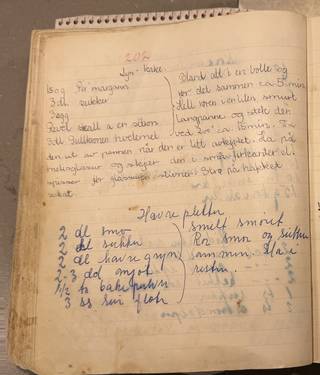 202
Lyn-kake.
150g Per margarin
3 dl. sukker
3 egg
Revet skall a en sitron
3 dl Gullkornen hvetemel
Bland alt i en bolle og
rør det sammen ca 5 min
Hell røren i en liten smurt
langpanne og stekt den
ved 200° ca 15 min. Ta
den ut av pannen når den er litt avkjølet. Ha på
melisglasur og skjær den i små firkanter el.
Havre pletter
2 dl smør
2 dl sukker
2 dl havregryn
2-3 dl mjøl
1 1/2 ts bakepulver
3 ss
Smelt smøret
Rør smør og sukker
sammen. Ha i
resten.